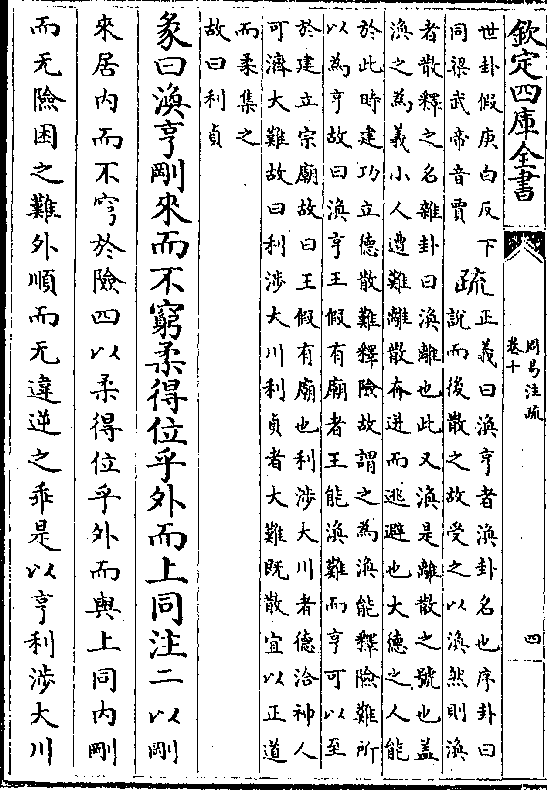 欽定四庫全書
周易注疏
卷十
四
世卦假庚白反下
同梁武帝音賈
疏
正義曰渙亨者渙卦名也序卦曰
說而後散之故受之以渙然則渙
者散釋之名雜卦曰渙離也此又渙是離散之號也蓋
渙之為義小人遭難離散奔迸而逃避也大德之人能
於此時建功立德散難釋險故謂之為渙能釋險難所
以為亨故曰渙亨王假有廟者王能渙難而亨可以至
於建立宗廟故曰王假有廟也利涉大川者德洽神人
可濟大難故曰利涉大川利貞者大難既散宜以正道
而柔集之
故曰利貞
彖曰渙亨剛來而不窮柔得位乎外而上同注二以剛
來居內而不窮於險四以柔得位乎外而與上同內剛
而无險困之難外順而无違逆之乖是以亨利涉大川